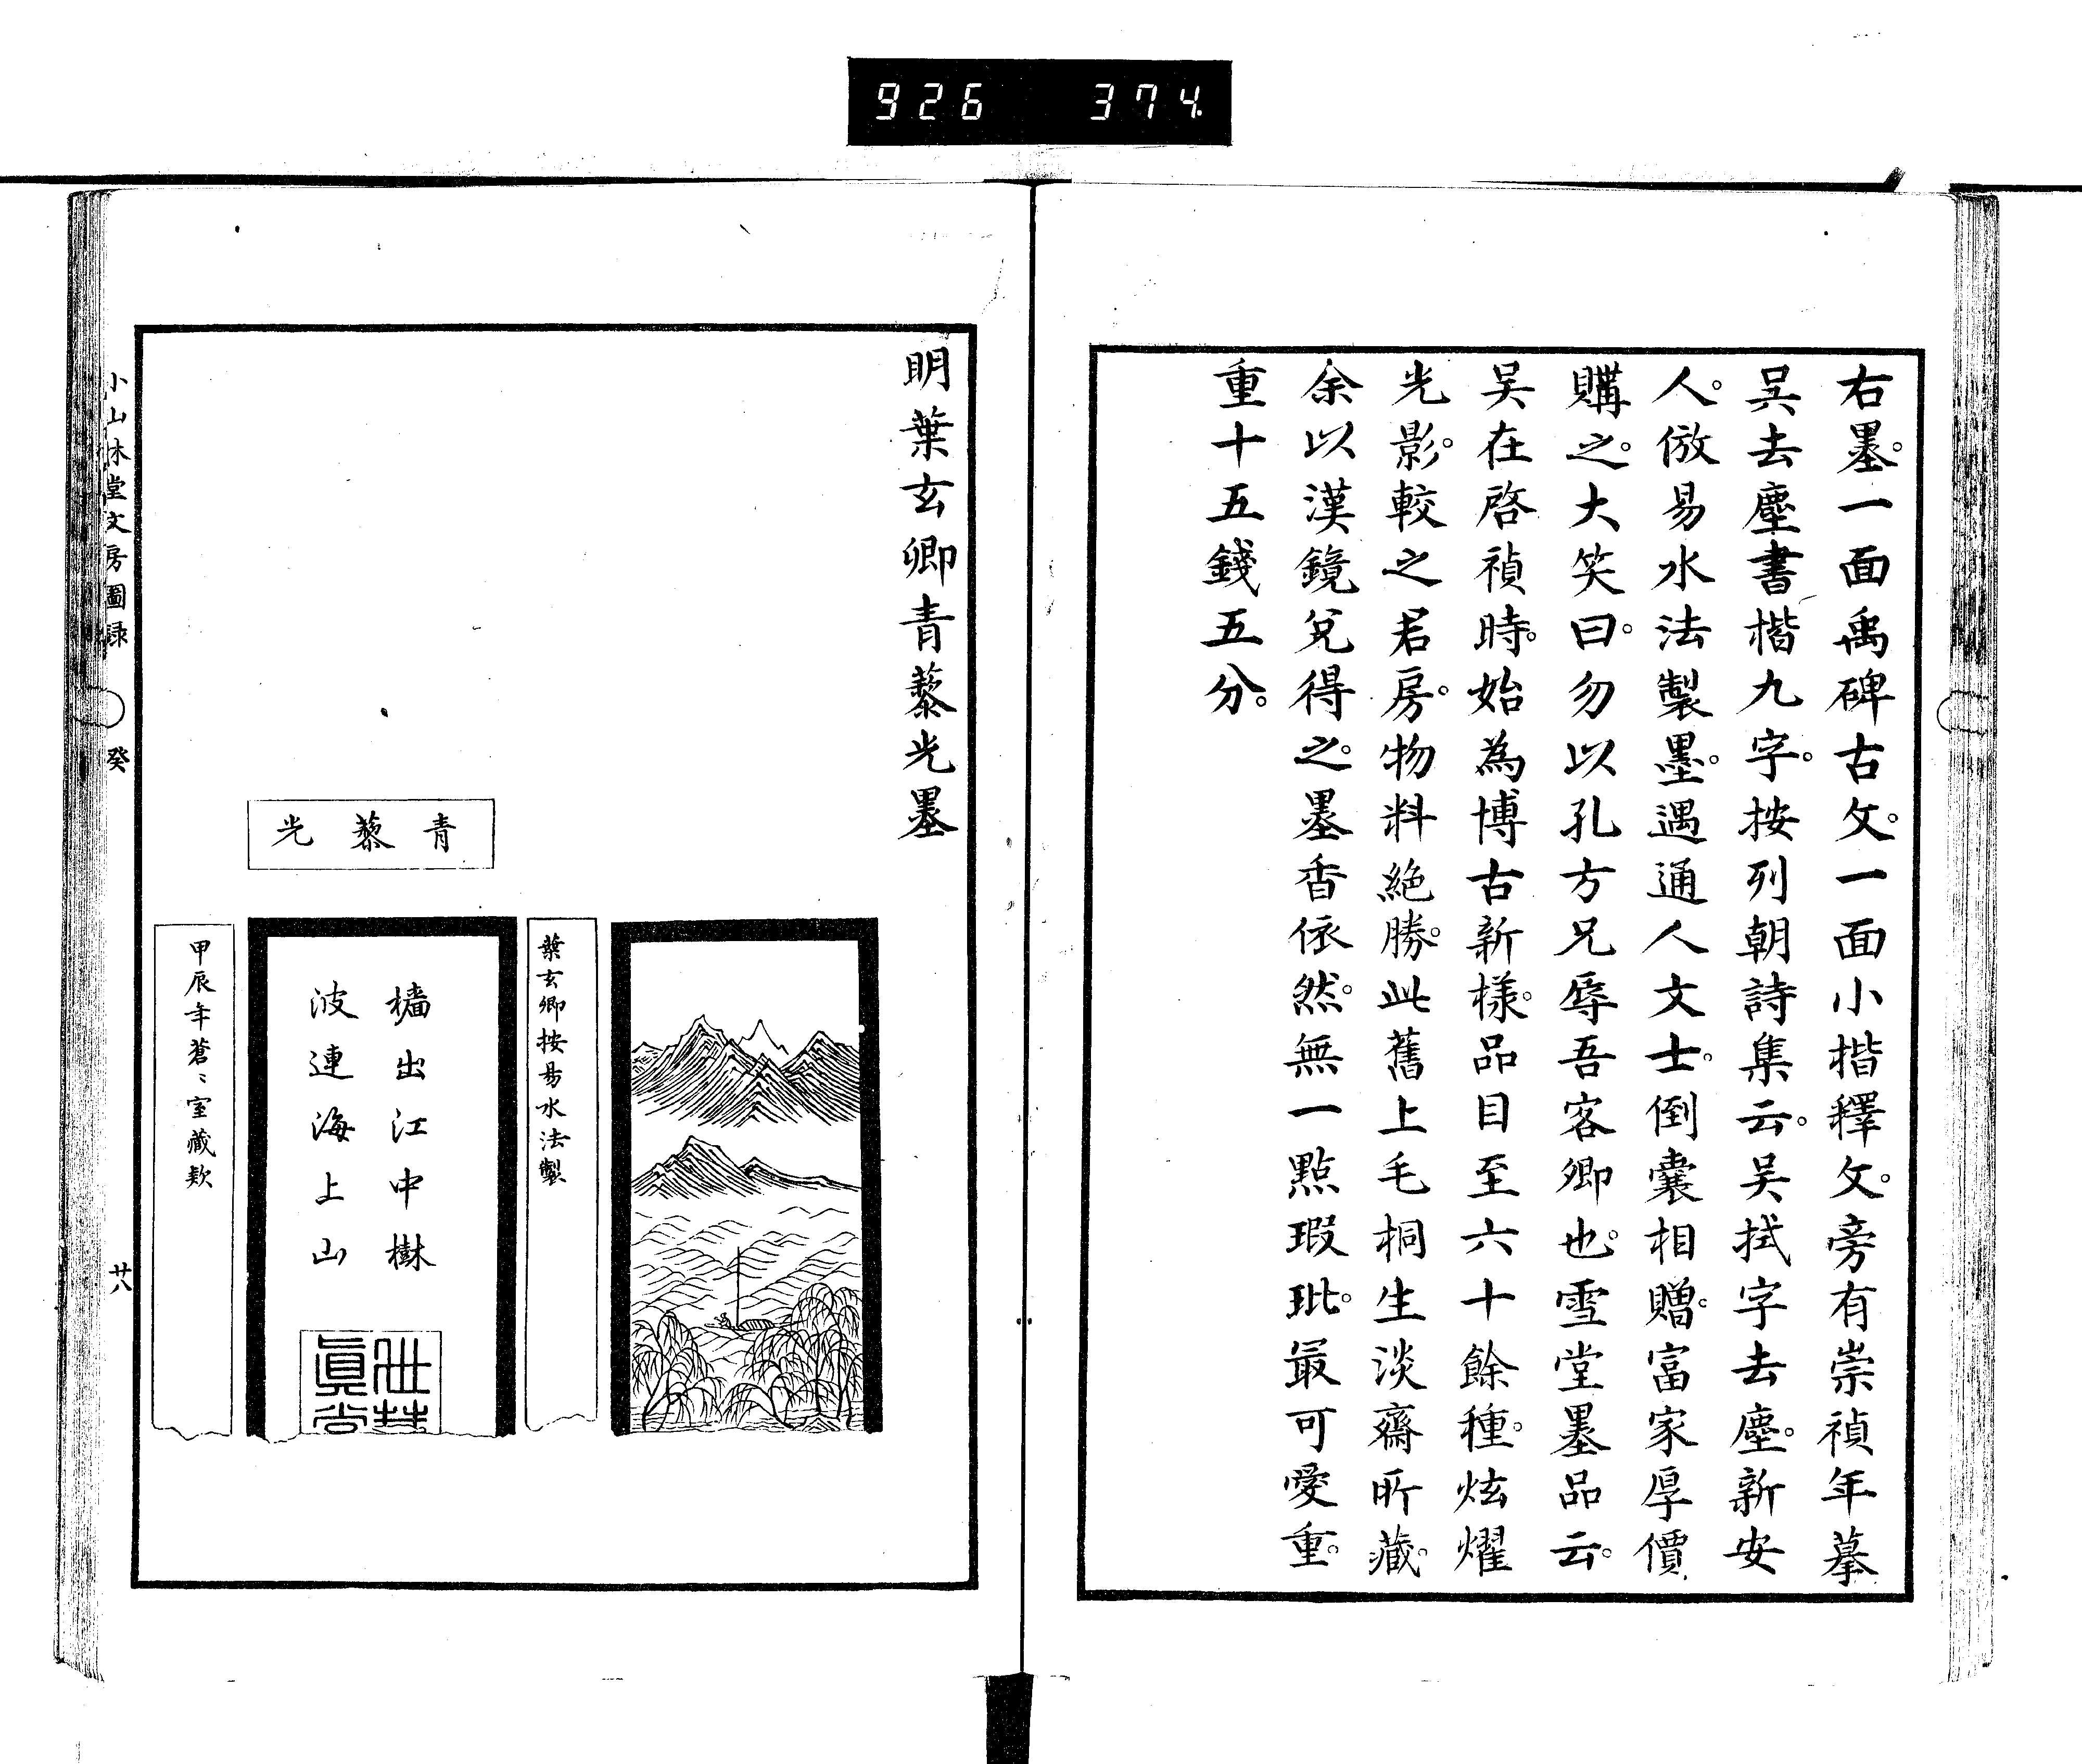 926 374
右墨。一面禹碑古文。一面小楷釋文。旁有崇禎年摹
吴去塵書楷九字。按列朝詩集云。吴拭字去塵。新安
人。倣易水法製墨。遇通人文士。倒囊相贈。富家厚價
購之。大笑曰。勿以孔方兄辱吾客卿也。雪堂墨品云。
吴在啓禎時。始為博古新樣。品目至六十餘種。炫燿
光影。較之君房。物料絶勝。此舊上毛桐生淡齋所藏。
余以漢鏡兌得之。墨香依然。無一點瑕玼。最可愛重。
重十五錢五分。
明葉玄卿青藜光墨
青藜光
葉玄卿按易水法製
檣出江中樹
波連海上山
甲辰年蒼〻室藏款
小山林堂文房圖録
癸
廿八